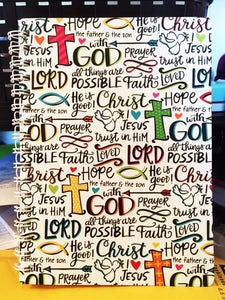 Christ HOPE
the father & the son
He is good! JESUS in HiM with GOD PRAYER trust in HiM
LORD all things are POSSIBLE Faith LOVED
Christ HOPE
the father & the son
He is good! with GOD PRAYER
JESUS in HiM trust in HiM
LORD all things are POSSIBLE Faith LOVED
Christ HOPE
the father & the son
He is good! with GOD PRAYER
JESUS in HiM trust in HiM
LORD